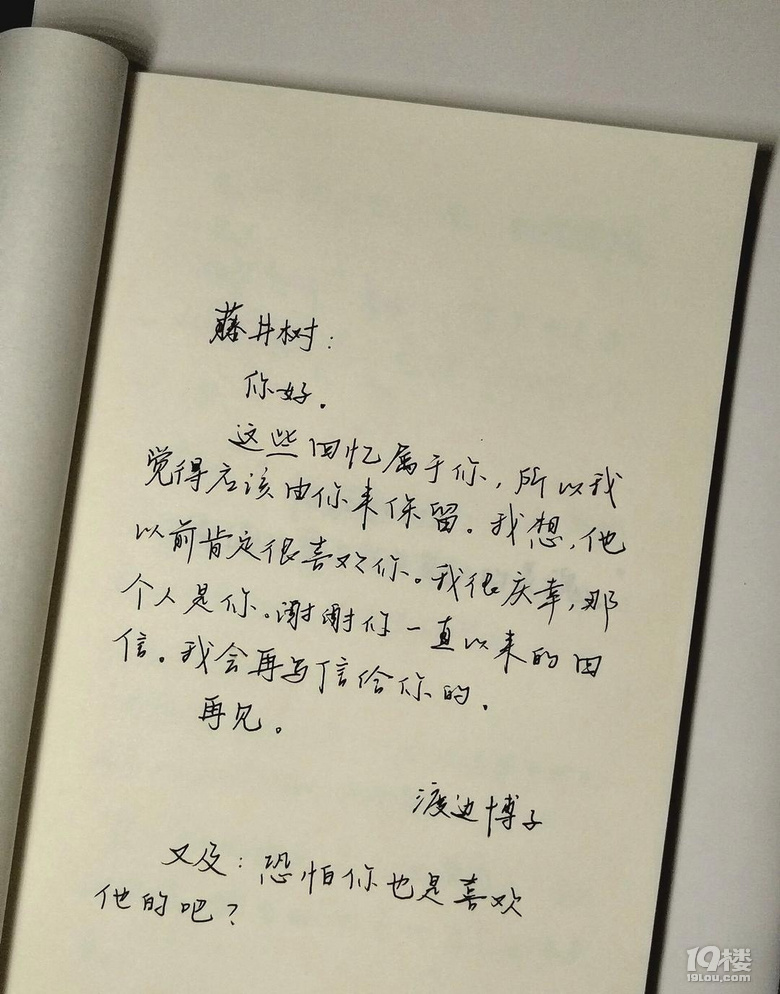 藤井树：
你好。
这些回忆属于你，所以我
觉得应该由你来保留。我想，他
以前肯定很喜欢你。我很庆幸，那
个人是你。谢谢你一直以来的回
信。我会再写信给你的。
再见。
渡边博子
又及：恐怕你也是喜欢
他的吧？
19楼
19lou.com